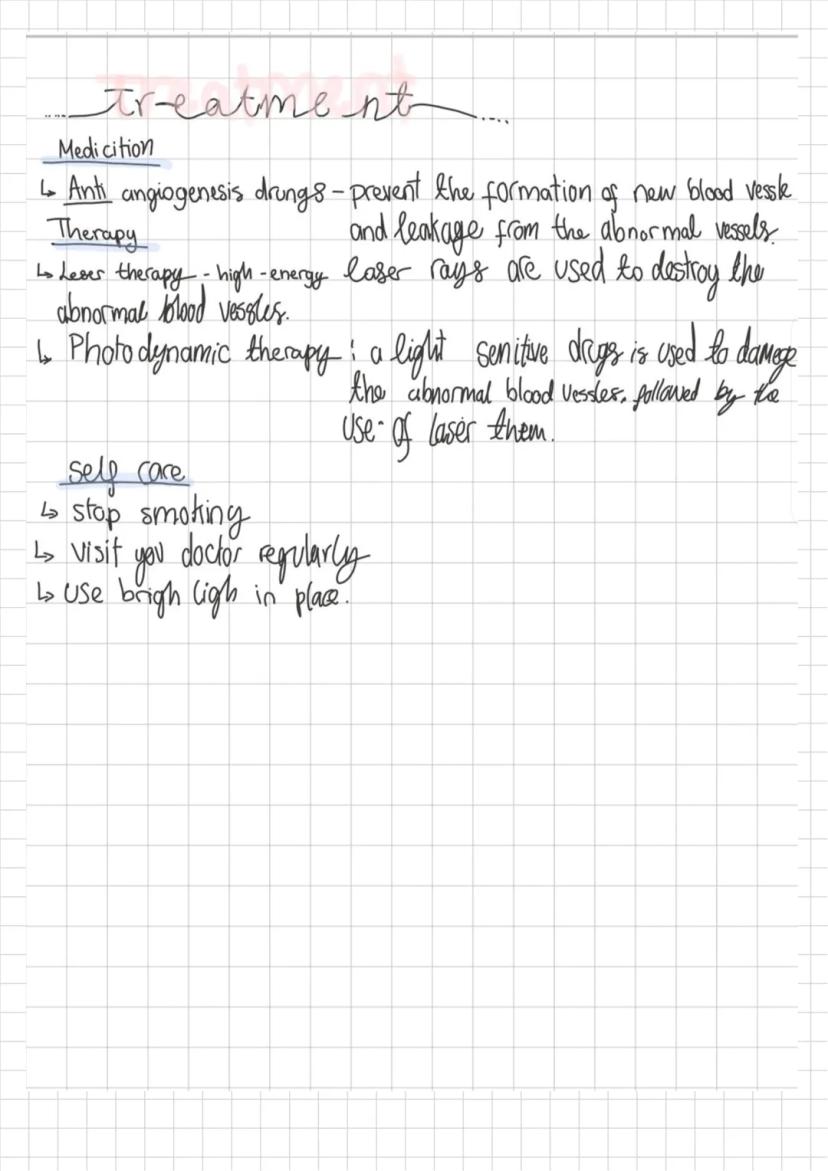 Treatment
Medicition
↳ Anti angiogenesis drungs - prevent the formation of new blood vessle
and leakage from the abnormal vessels.
Therapy
↳ Leser therapy - high-energy laser rays are used to destroy the
abnormal blood vessles.
↳ Photodynamic therapy : a light senitive drugs is used to damege
the abnormal blood vessles, followed by the
use of laser them.
Self care
↳ stop smoking
↳ visit you doctor regularly
↳ use brigh ligh in place.